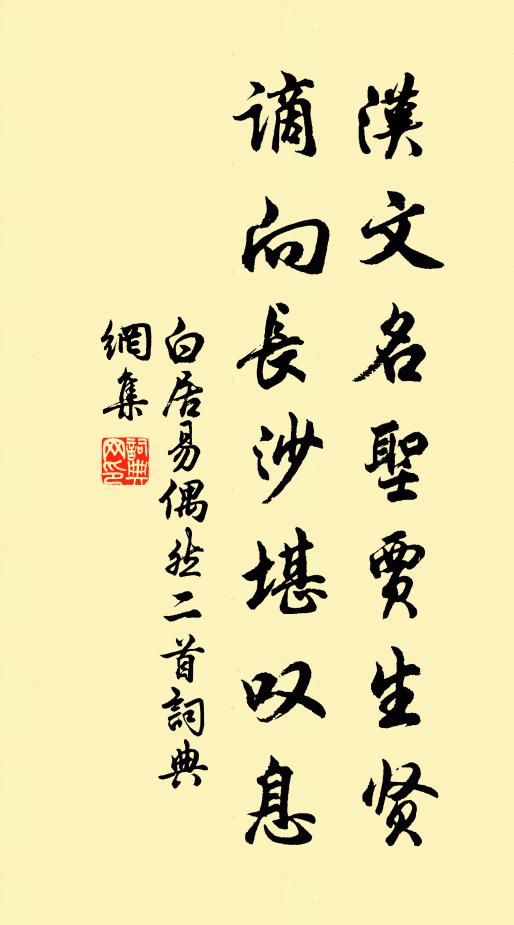 漢文名聖賈生贤
谪向長沙堪叹息
白居易偶然二首詞典
網集
詞典
网印